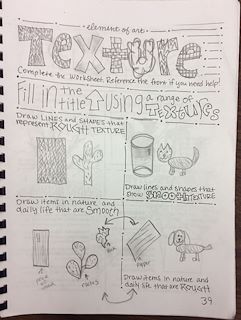 element of art
TexTure
Complete the worksheet. Reference the front if you need help!
Fill in the title ↑ using a range of TEXTURES
Draw LINES and SHAPES that
represent ROUGH TEXTURE
Draw lines and shapes that
show SMOOTH TEXTURE
Draw items in nature and
daily life that are Smooth
rock
paper
cactus
piece of wood
Draw items in nature and
daily life that are ROUGH
39